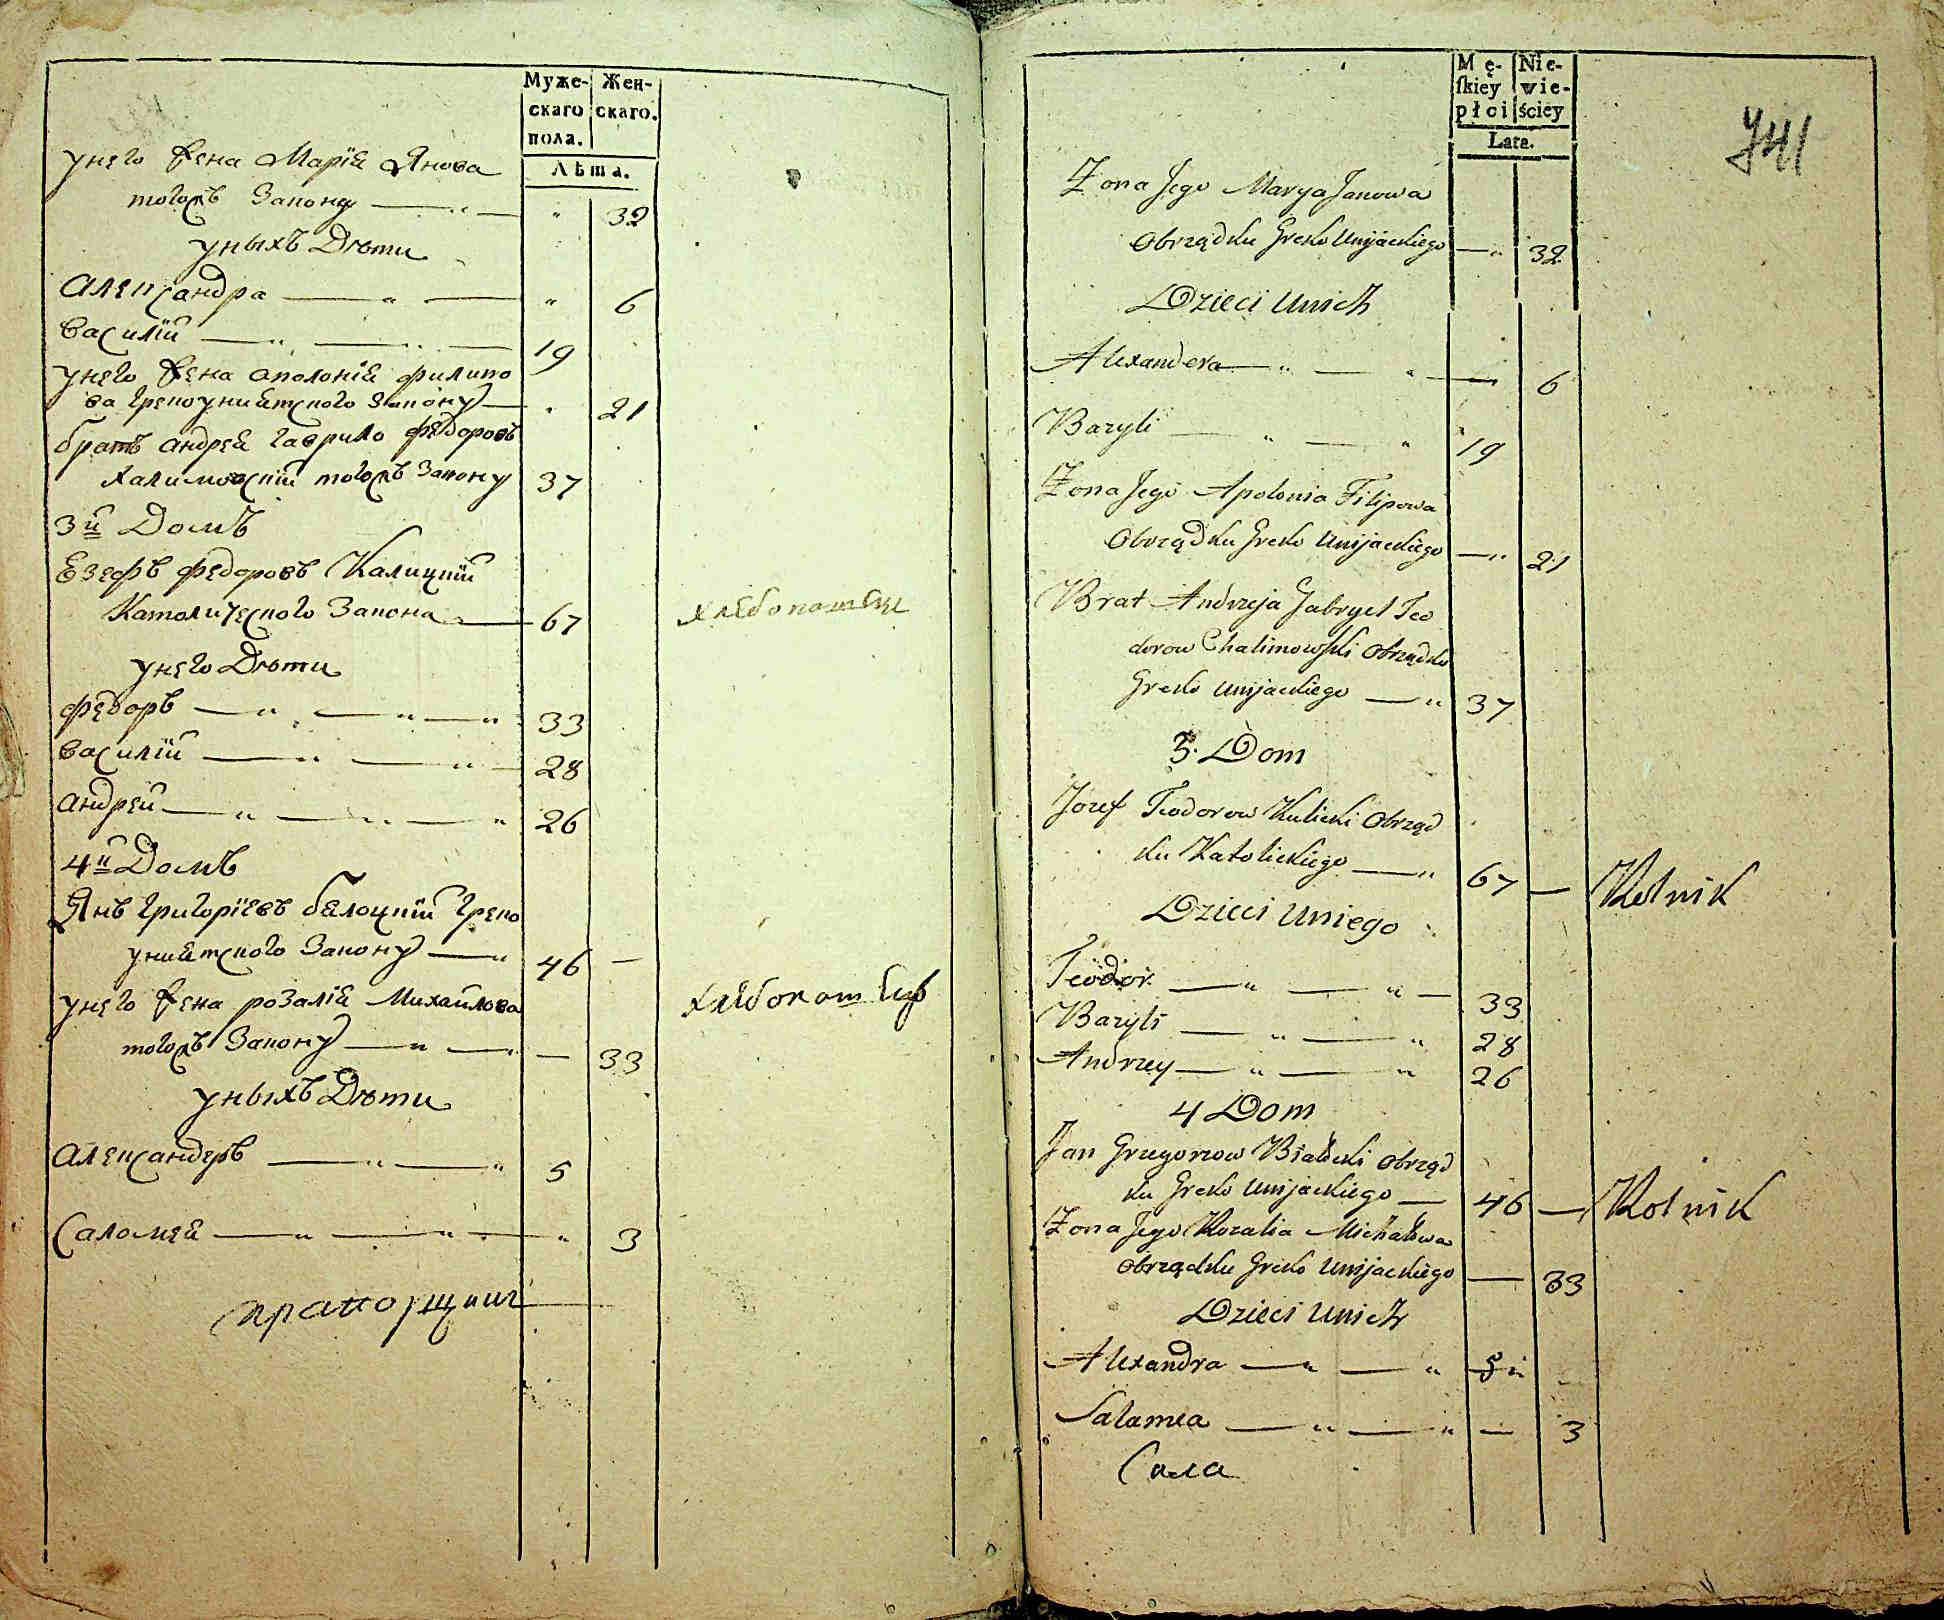 Муже- Жен-
скаго скаго.
пола.
Лѣта.
унего жена Марїя Янова
тогожъ Закону — " — " 32
уныхъ Дѣти
Александра — " — " 6
Василїй — " — " — 19
унего жена аполонїя филипо
ва Грекоуниятского Закону — . 21
братъ андрея гаврило федоровъ
халимовскїй тогожъ Закону 37
3й Домъ
Езефъ федоровъ Калицкїй
Католического Закона — 67 хлебопашецъ
унего Дѣти
федоръ — " — " — " 33
Василїй — " — " — 28
андрей — " — " — " 26
4й Домъ
Янъ григорїевъ белоцкїй греко
униятского Закону — " 46 —
унего жена розалїя Михайлова хлебопашецъ
тогожъ Закону — " — " — 33
уныхъ Дѣти
александеръ — " — " 5
Саломея — " — " — " 3
прапорщикъ
Mę- Nie-
ſkiey wie-
płci ściey
Lata.
741
Zona Jego Marya Janowa
Obrządku Greko Unijackiego — " 32
Dzieci Unich
Alexandera — " — " — 6
Bazyli — " — " 19
Zona Jego Apolonia Filipowa
Obrządku Greko Unijackiego — " 21
Brat Andrzeja Gabryel Teo
dorow Chalimowski Obrządku
Greko Unijackiego — " 37
3. Dom
Jozef Teodorow Kulicki Obrząd
ku Katolickiego — " 67 — Rolnik
Dzieci Uniego
Teodor — " — " — 33
Bazyli — " — " 28
Andrzey — " — " 26
4 Dom
Jan Grzegorzow Białocki Obrząd
ku Greko Unijackiego — 46 — Rolnik
Zona Jego Rozalia Michałowa
Obrządku Greko Unijackiego — 33
Dzieci Unich
Alexandra — " — " 5 "
Salamea — " — " — 3